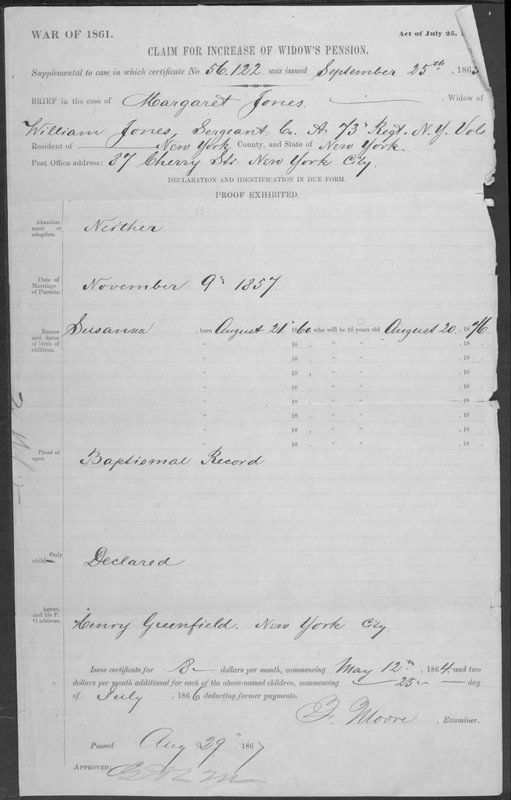 WAR OF 1861.
Act of July 25,
CLAIM FOR INCREASE OF WIDOW'S PENSION.
Supplemental to case in which certificate No. 56.122 was issued September 25th, 1865
BRIEF in the case of Margaret Jones. , Widow of
William Jones, Sergeant Co. A 73d Regt. N.Y. Vols
Resident of New York County, and State of New York.
Post Office address: 87 Cherry Str. New York City.
DECLARATION AND IDENTIFICATION IN DUE FORM.
PROOF EXHIBITED.
Abandonment or adoption.
Neither
Date of Marriage of Parents.
November 9th 1857
Names and dates of birth of children.
Susanna , born August 21 1860, who will be 16 years old August 20, 1876
" 18 , " " , 18 .
" 18 , " " , 18 .
" 18 , " " , 18 .
" 18 , " " , 18 .
" 18 , " " , 18 .
" 18 , " " , 18 .
" 18 , " " , 18 .
" 18 , " " , 18 .
Proof of ages.
Baptismal Record
Only child
Declared
Agent, and his P. O. address.
Henry Greenfield. New York City
Issue certificate for 8 dollars per month, commencing May 12th, 1864, and two
dollars per month additional for each of the above-named children, commencing 25th day
of July , 1866 deducting former payments.
F. Moore , Examiner.
Passed Aug 29th 1867
APPROVED: